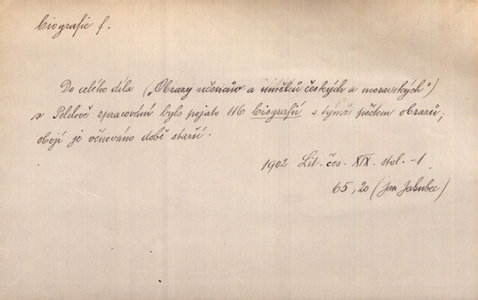 biografie f.
Do celého díla („Obrazy učencův a umělců českých a moravských")
v Pelclově zpracování bylo pojato 116 biografií s týmž počtem obrazů;
obojí je věnováno době starší.
1902 Lit. čes. XIX. stol. -1
65, 20 (Jan Jakubec)